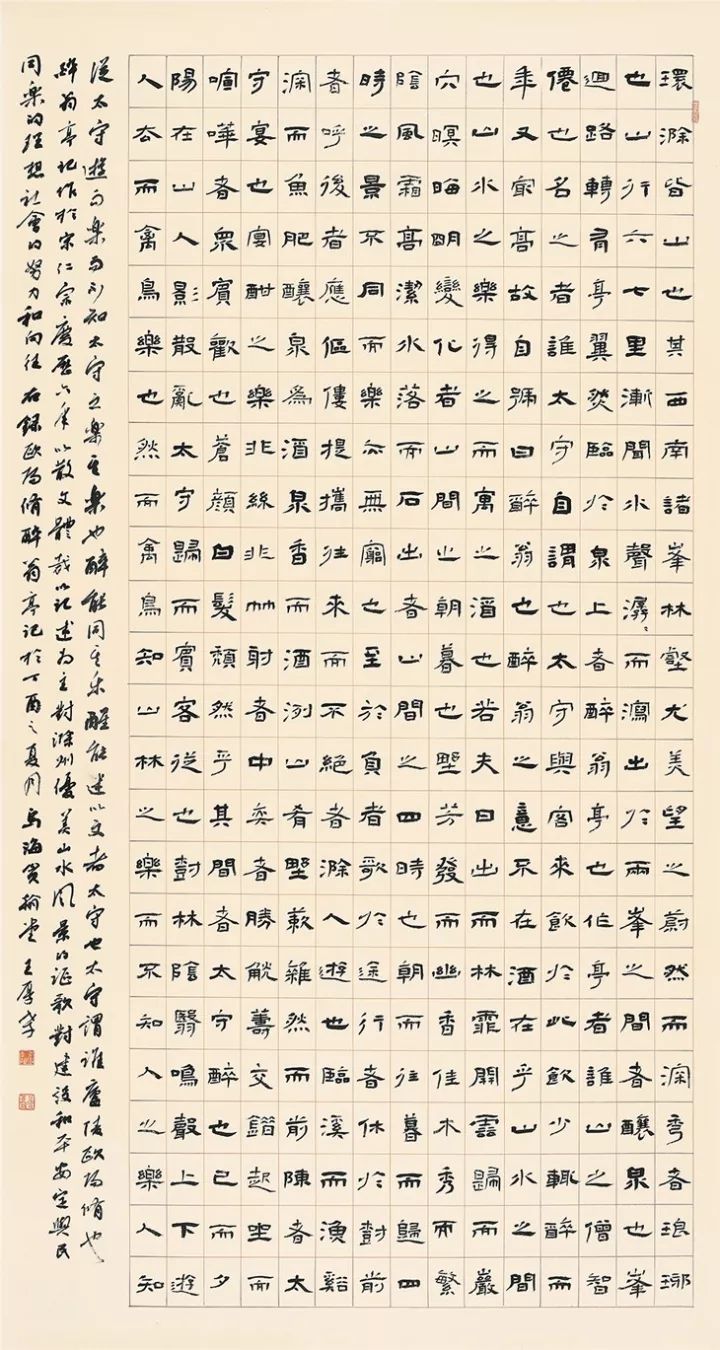 環滁皆山也其西南諸峯林壑尤美望之蔚然而深秀者琅瑘
也山行六七里漸聞水聲潺潺而瀉出於兩峯之間者釀泉也峯
迴路轉有亭翼然臨於泉上者醉翁亭也作亭者誰山之僧智
僊也名之者誰太守自謂也太守與客來飲於此飲少輒醉而
年又最高故自號曰醉翁也醉翁之意不在酒在乎山水之間
也山水之樂得之而寓之酒也若夫日出而林霏開雲歸而巖
穴暝晦明變化者山間之朝暮也野芳發而幽香佳木秀而繁
陰風霜高潔水落而石出者山間之四時也朝而往暮而歸四
時之景不同而樂亦無窮也至於負者歌於途行者休於樹前
者呼後者應傴僂提攜往來而不絕者滁人遊也臨溪而漁谿
深而魚肥釀泉為酒泉香而酒洌山肴野蔌雜然而前陳者太
守宴也宴酣之樂非絲非竹射者中奕者勝觥籌交錯起坐而
喧嘩者眾賓歡也蒼顏白髮頹然乎其間者太守醉也已而夕
陽在山人影散亂太守歸而賓客從也樹林陰翳鳴聲上下遊
人去而禽鳥樂也然而禽鳥知山林之樂而不知人之樂人知
從太守遊而樂而不知太守之樂其樂也醉能同其樂醒能述以文者太守也太守謂誰廬陵歐陽脩也
醉翁亭記作於宋仁宗慶歷六年以散文體裁以記述為主對滁州優美山水風景的謳歌對建設和平安定與民
同樂的理想社會的努力和向往右錄歐陽脩醉翁亭記於丁酉之夏月烏海 王厚